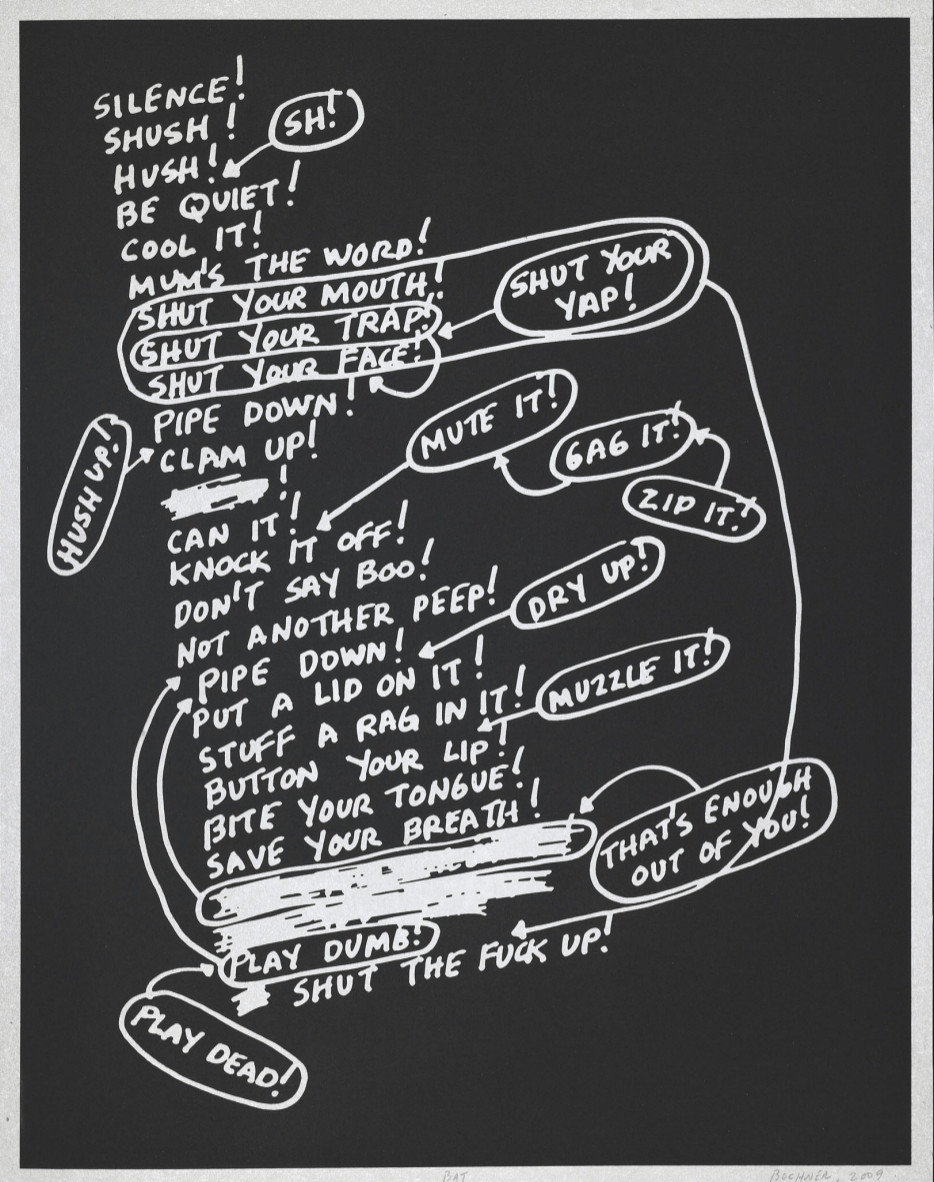 SILENCE!
SHUSH!
SH!
HUSH!
BE QUIET!
COOL IT!
MUM'S THE WORD!
SHUT YOUR MOUTH!
SHUT YOUR
YAP!
SHUT YOUR TRAP!
SHUT YOUR FACE!
PIPE DOWN!
HUSH UP!
CLAM UP!
!
MUTE IT!
GAG IT!
ZIP IT!
CAN IT!
KNOCK IT OFF!
DON'T SAY BOO!
NOT ANOTHER PEEP!
DRY UP!
PIPE DOWN!
PUT A LID ON IT!
MUZZLE IT!
STUFF A RAG IN IT!
BUTTON YOUR LIP!
BITE YOUR TONGUE!
SAVE YOUR BREATH!
THAT'S ENOUGH
OUT OF YOU!
PLAY DUMB!
SHUT THE FUCK UP!
PLAY DEAD!
BAT
BOCHNER, 2009